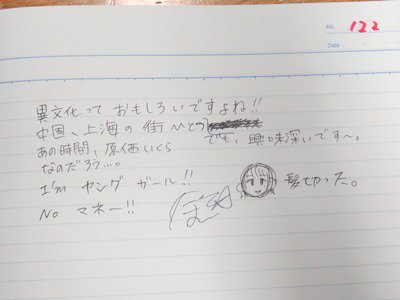 No. 122
Date
異文化って おもしろいですよね!!
中国、上海の街ひとつ でも、興味深いです〜。
あの時間、原価いくら
なのだろう…。
I'm ヤング ガール!!
No マネー!!
髪切った。